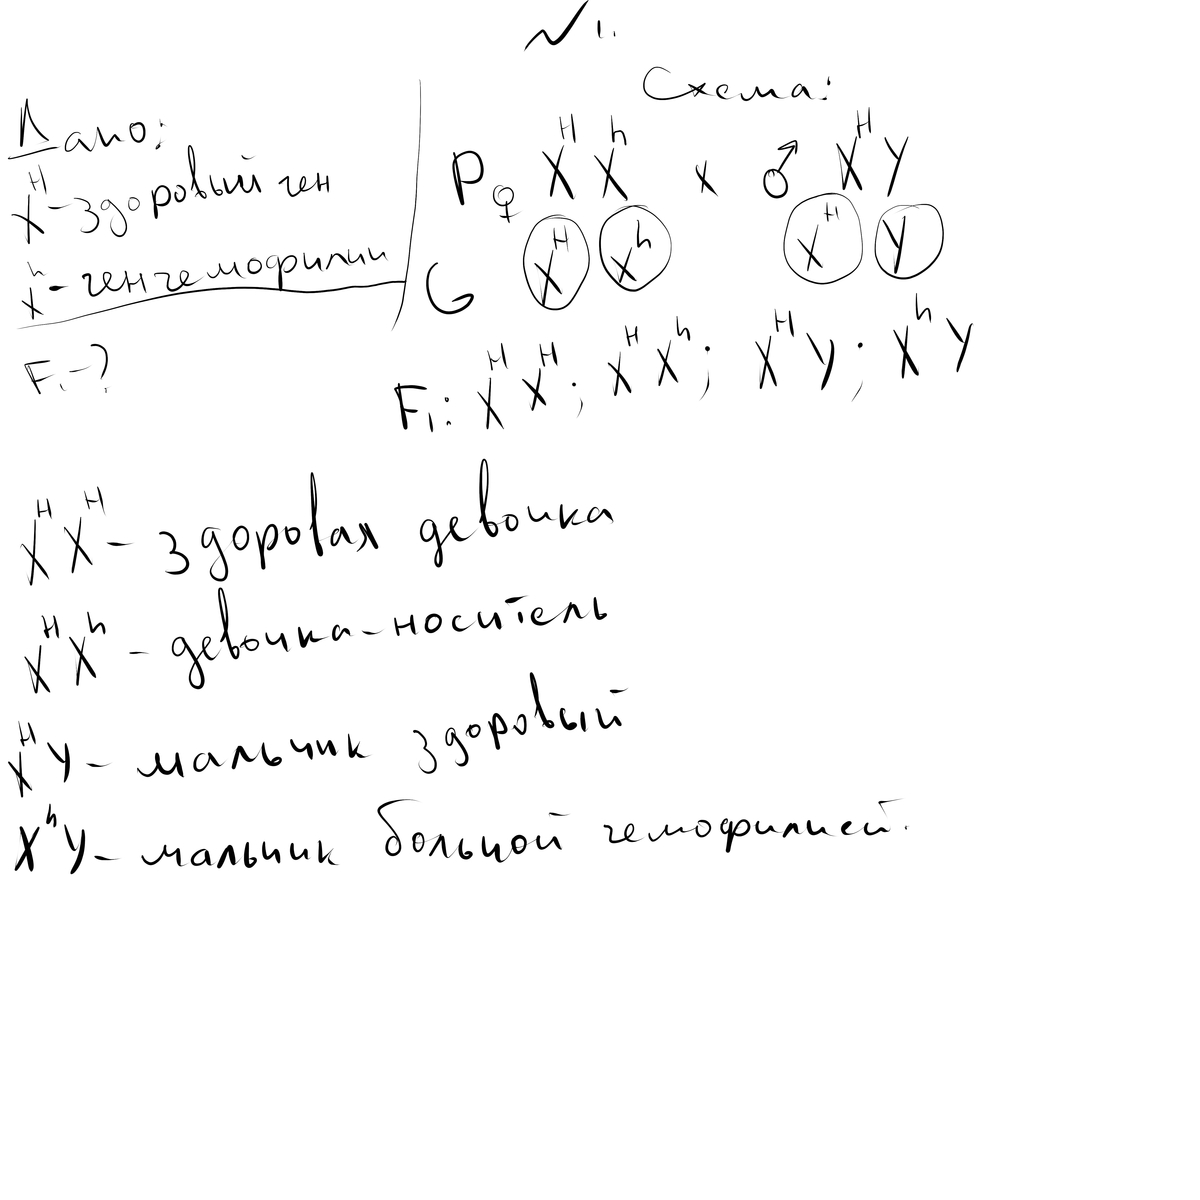 √ 1.
Дано:
X^H - здоровый ген
X^h - ген гемофилии
F₁ - ?
Схема:
P ♀ X^H X^h x ♂ X^H Y
G X^H X^h X^H Y
F₁: X^H X^H; X^H X^h; X^H Y; X^h Y
X^H X^H - здоровая девочка
X^H X^h - девочка-носитель
X^H Y - мальчик здоровый
X^h Y - мальчик больной гемофилией.